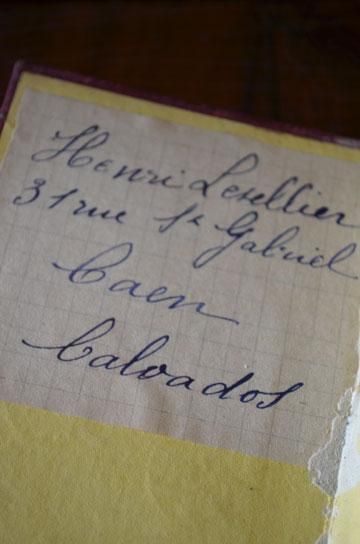 Henri Lesellier
31 rue St Gabriel
Caen
Calvados